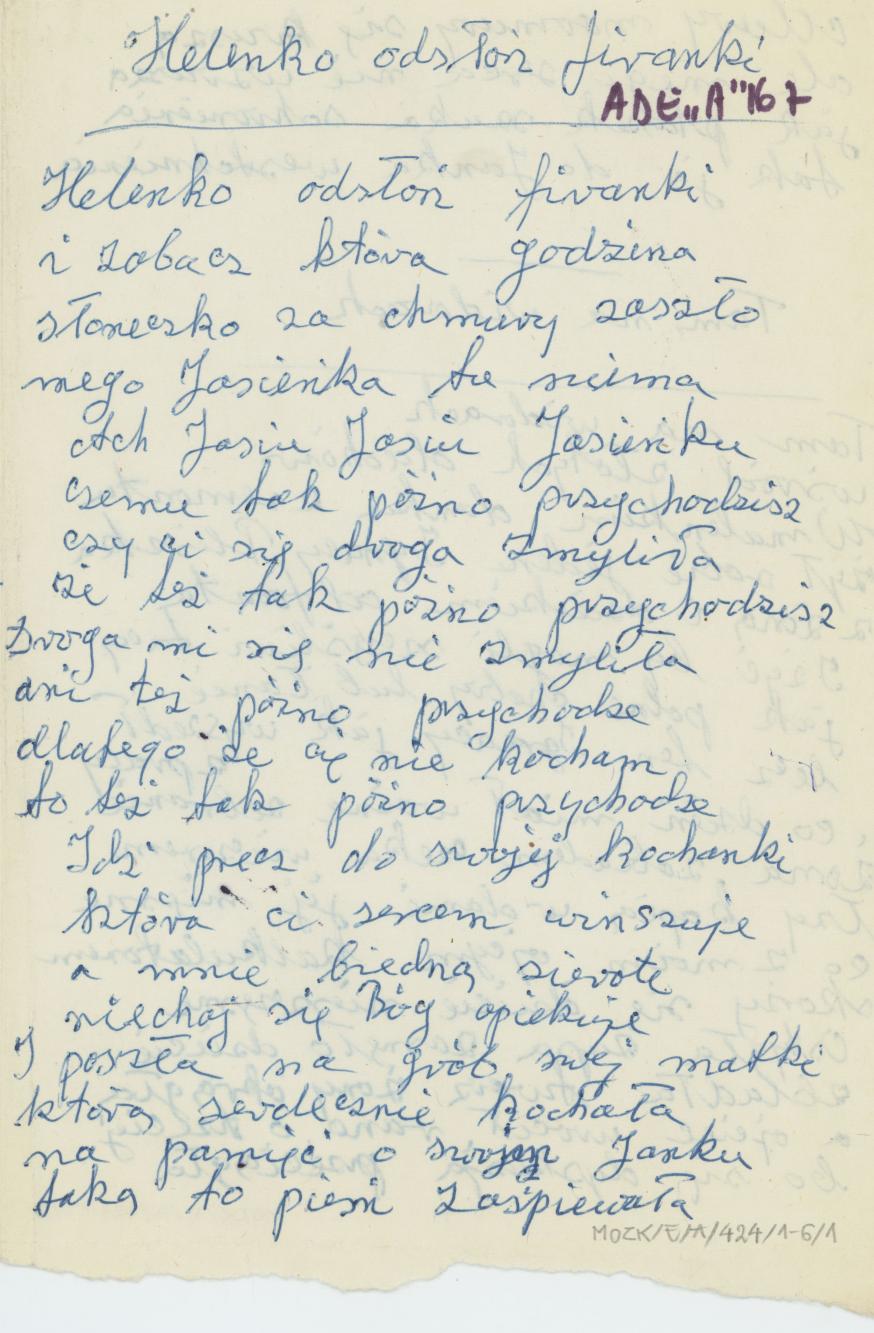 Helenko odsłoń firanki
ADE „A" 167
Helenko odsłoń firanki
i zobacz która godzina
słoneczko za chmury zaszło
mego Jasieńka tu nima
Ach Jasiu Jasiu Jasieńku
czemu tak późno przychodzisz
czy ci się droga zmyliła
że też tak późno przychodzisz
Droga mi się nie zmyliła
ani też późno przychodze
dlatego że cię nie kocham
to też tak późno przychodze
Idź precz do swojej kochanki
która ci sercem winszuje
a mnie biedną sierotę
niechaj się Bóg opiekuje
I poszła na grób swej matki
którą serdecznie kochała
na pamięć o swojem Janku
taką to pieśń zaśpiewała
MOZK/E/A/424/1-6/1